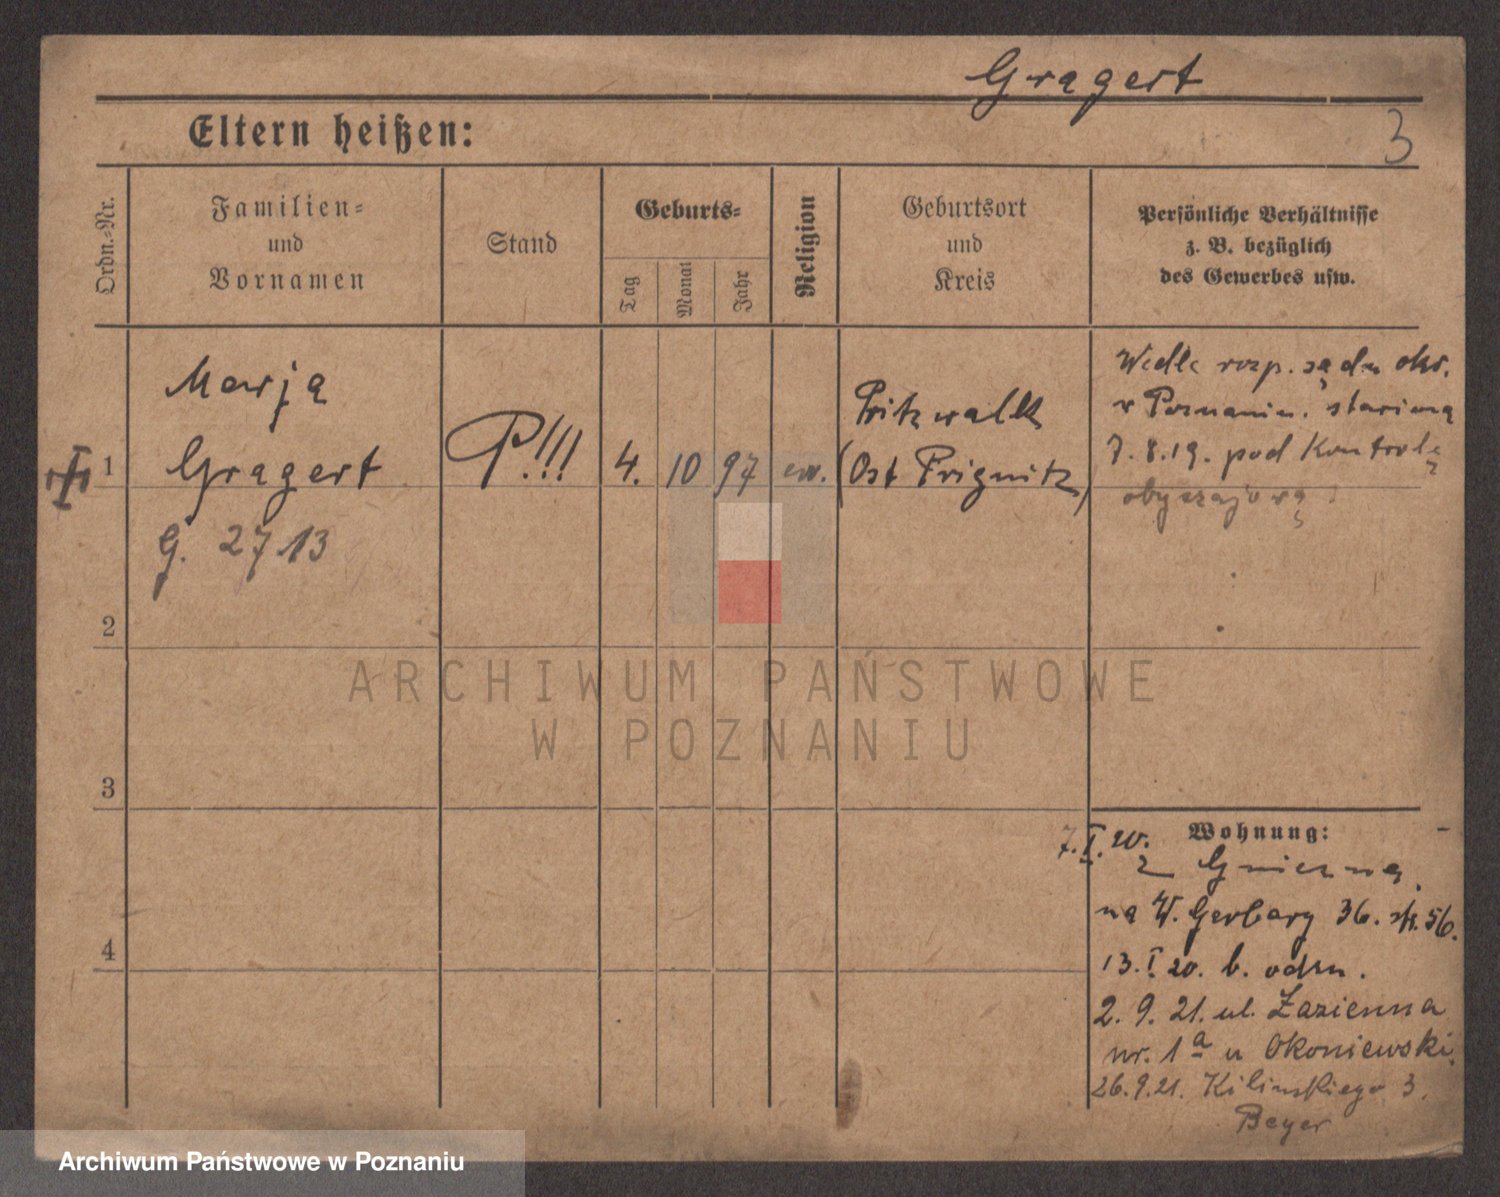 Gragert
3
Eltern heißen:
Ordn.-Nr.
Familien-
und
Vornamen
Stand
Geburts-
Tag
Monat
Jahr
Religion
Geburtsort
und
Kreis
Persönliche Verhältnisse
z. B. bezüglich
des Gewerbes usw.
1
Marja
Gragert
G. 2713
P!!!
4.
10
97
ew.
Pritzwalk
(Ost Prignitz)
Wedle rozp. sądu okr.
w Poznaniu.
7.8.19. pod Kontrolą
obyczajową
2
3
4
Wohnung:
7.I.20.
z Gniezna.
na W. Gerbary 36. 56.
13.I 20. b. odm.
2. 9. 21. ul. Łazienna
nr. 1a u Okoniewski.
26.9.21. Kilinskiego 3.
Beyer
ARCHIWUM PAŃSTWOWE
W POZNANIU
Archiwum Państwowe w Poznaniu